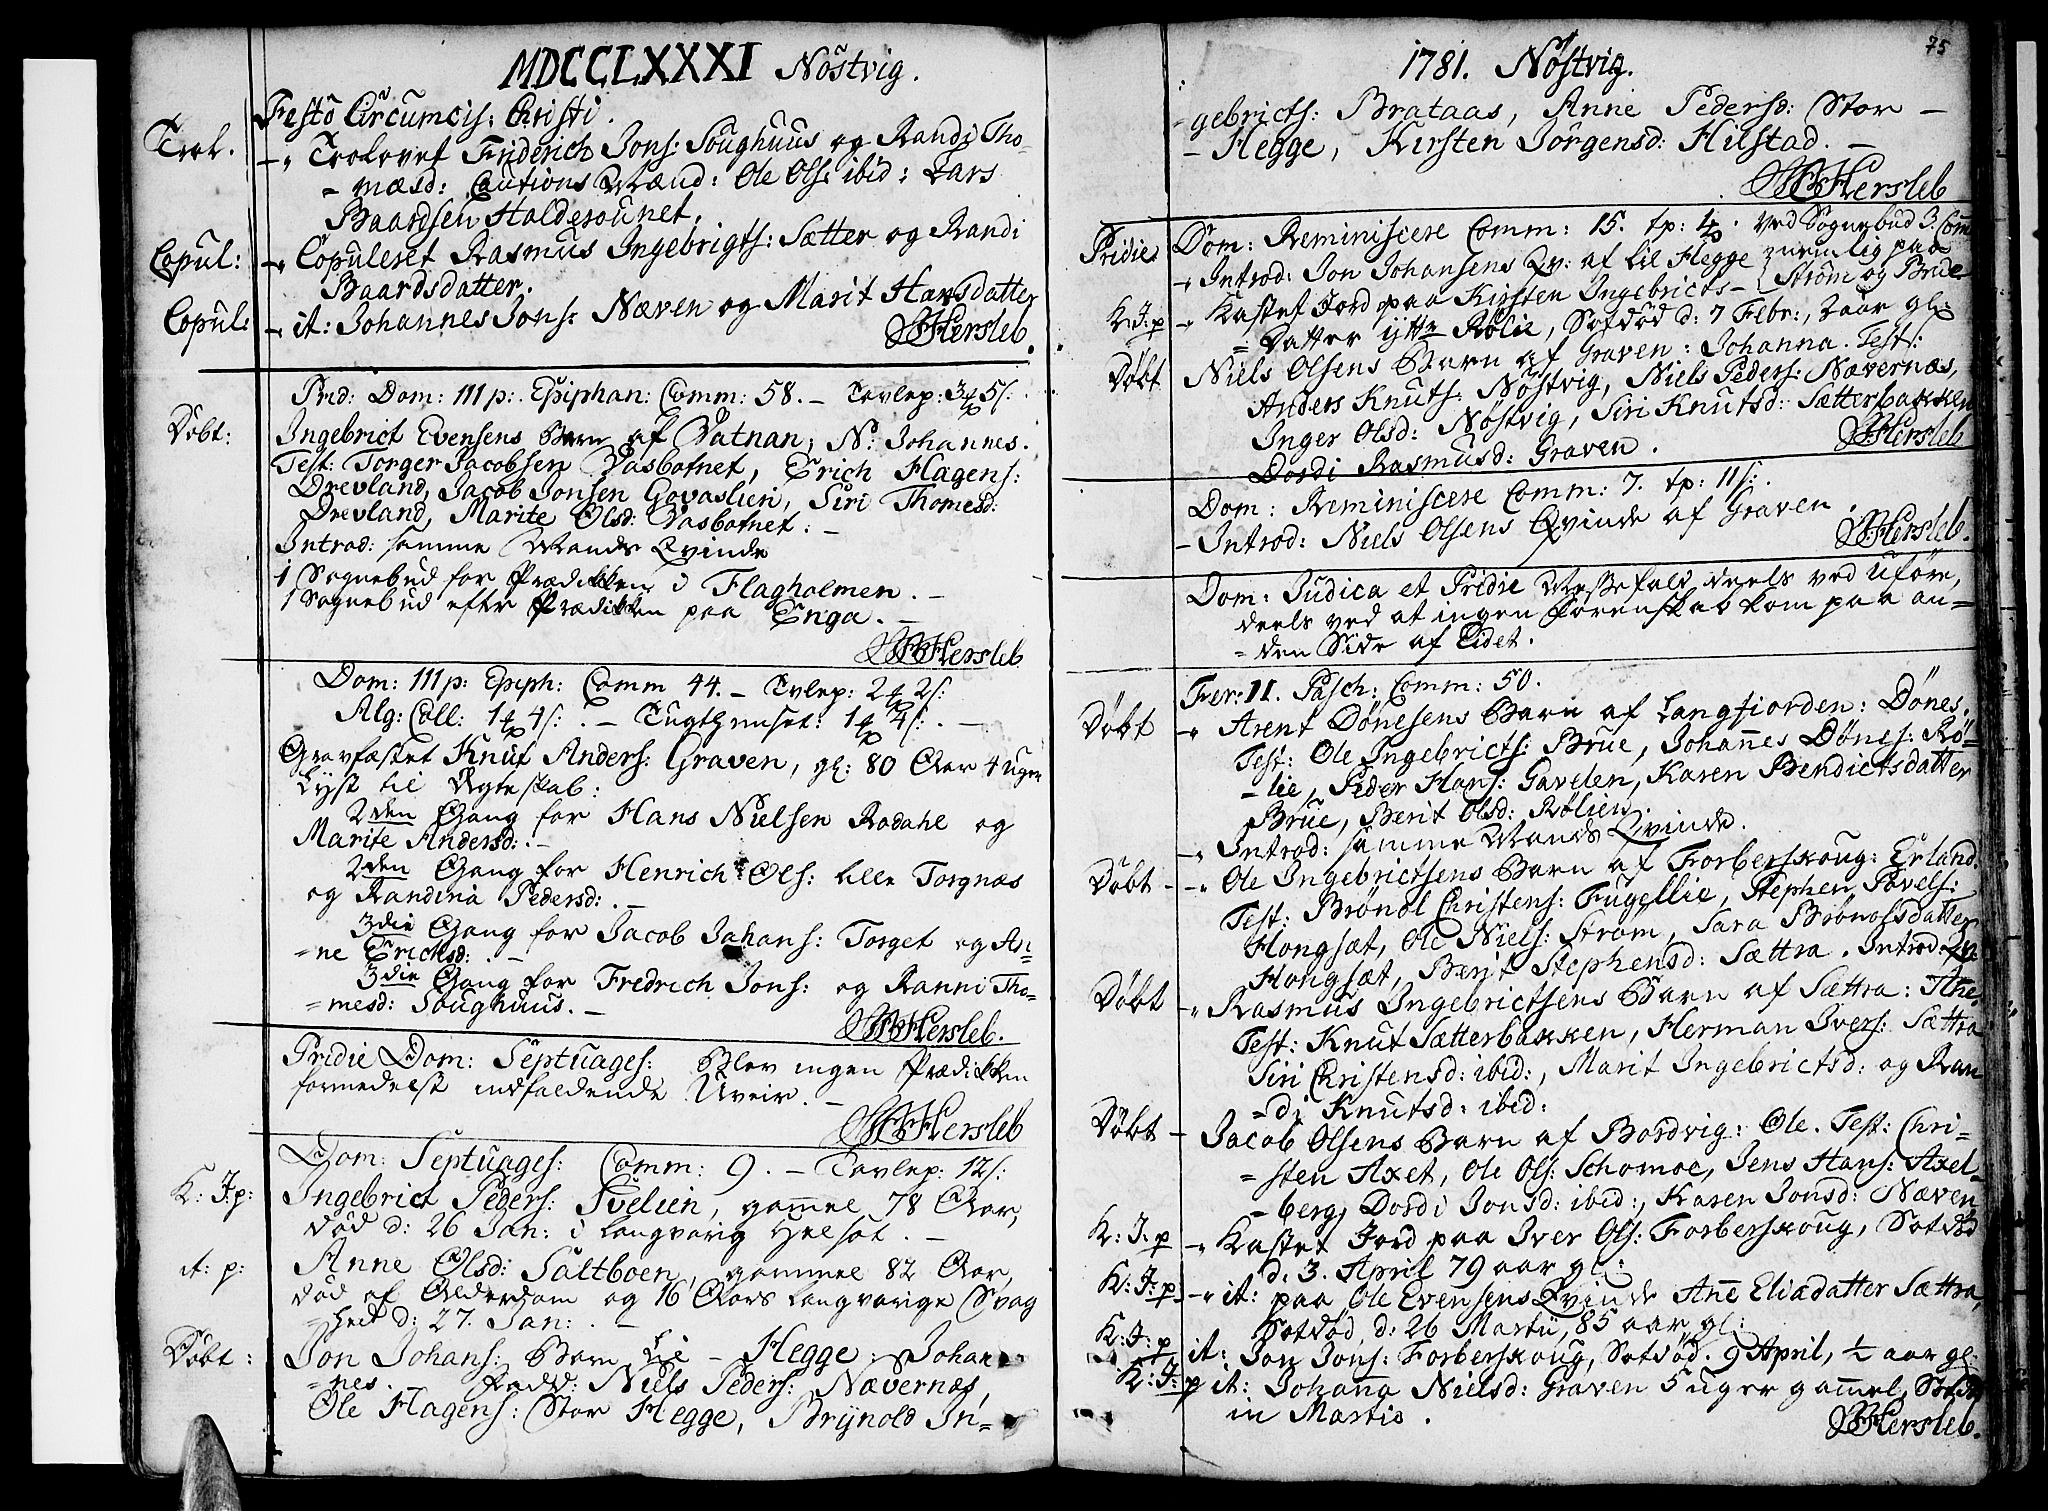 MDCCLXXXI Nöstvig.
Festo Circumcis: Christi.
Trol. Trolovet Friderich Jons: Soughuus og Randi Tho-
mæsd: Cautions Mænd: Ole Ols: ibid: Lars
Baardsen Haldorounet.
Copul: Copuleret Rasmus Ingebrigts: Sætter og Randi
Baardsdatter.
Copul: it: Johannes Jons: Næven og Marit Hansdatter
Hersleb.
Prid: Dom: III p: Epiphan: Comm: 58. – Tavlep: 3 5 s.
Döbt: Ingebrict Evensens Barn af Vatnan, N: Johannes.
Test: Torger Jacobsen Vasbotnet, Erich Hagens:
Drevland, Jacob Jonsen Govaslien, Siri Thomesd:
Drevland, Marite Olsd: Vasbotnet. –
Introd: samme Mands Qvinde
1 Sognebud for Prædikken i Flagholmen. –
1 Sognebud efter Prædikken paa Enga. –
Hersleb
Dom: III p: Epiph: Comm 44. – Tvlep: 2 2 s:
Alg: Coll: 1 4 s: . – Tugthuuset: 1 4 s: . –
Gravfæstet Knut Anders: Graven, gl: 80 Aar 4 uger
Lyst til Ægteskab:
2den Gang for Hans Nielsen Rodahl og
Marite Andersd: . –
2den Gang for Henrich Ols: lille Torgnæs
og Randina Pedersd: . –
3die Gang for Jacob Johans: Torget og An-
ne Ericksd: . –
3die Gang for Fredrich Jons: og Ranni Tho-
mesd: Soughuus. –
Hersleb.
Pridie Dom: Septuages: Blev ingen Prædikken
formedelst indfaldende Uveir. –
Hersleb
Dom: Septuages: Comm: 9. – Tavlep: 12 s:
K: J: p: Ingebrict Peders: Svelien, gamel 78 Aar,
död d: 26 Jan: i langvarig Helsot. –
it: p: Anne Olsd: Saltboen, gammel 82 Aar,
död af Alderdom og 16 Aars langvarige Svag
hed d: 27. Jan: . –
Döbt: Jon Johans: Barn Lie – Hegge: Johan
nes. – Fadd: Niels Peders: Nævernæs,
Ole Hagens: Stor Hegge, Brynold In-
75
1781. Nøstvig.
gebricts: Brataas, Anne Pedersd: Stor –
Hegge, Kirsten Jörgensd: Hilstad. –
Hersleb
Pridie Dom: Reminiscere Comm: 15. tp: 4. ved Sognebud 3. Com
Introd: Jon Johansens Qv: af lil Hegge nemlig paa
K: J: p Kastet Jord paa Kirsten Ingebricts- Ström og Brue
Datter ytt Rölie, Sotdöd d: 7 Febr:, 2 aar gl:
Döbt Niels Olsens Barn af Graven: Johanna. Test:
Anders Knuts: Nöstvig, Niels Peders: Nævernæs,
Inger Olsd: Nöstvig, Siri Knutsd: Sætterbakken
Dordi Rasmusd: Graven.
Hersleb
Dom: Reminiscere Comm: 7. tp: 11 s: .
Introd: Niels Olsens Qvinde af Graven.
Hersleb.
Dom: Judica et Pridie Messefald deels ved Uföre,
deels ved at ingen Forenskab kom paa an-
den Side af Eidet.
Fer: II. Pasch: Comm: 50.
Döbt Arent Dönesens Barn af Langfiorden: Dönes.
Test: Ole Ingebricts: Brue, Johannes Dönes: Rö-
lie, Peder Hans: Gavelen, Karen Bendictsdatter
Brue, Berit Olsd: Rølien.
Introd: samme Mands Qvinde.
Döbt Ole Ingebrictsens Barn af Forberskoug: Erland.
Test: Bröndl Christens: Fugellie, Stephen Povels:
Hongsæt, Ole Niels: Ström, Sara Brönolsdatter
Hongsæt, Berit Stephensd: Sættra. Introd: Qv:
Döbt Rasmus Ingebrictsens Barn af Sættra: Ane.
Test: Knut Sætterbakken, Herman Ivers: Sættra
Siri Christensd: ibid:, Marit Ingebrictsd: og Ran
di Knutsd: ibid:
Döbt Jacob Olsens Barn af Bordvig: Ole. Test: Chri-
sten Axel, Ole Ols: Schomoe, Jens Hans: Axel-
berg, Dordi Jonsd: ibid:, Karen Jonsd: Næven
K: J: p Kastet Jord paa Iver Ols: Forberskoug, Sotdöd
d. 3. April 79 aar gl:
K: J: p. it: paa Ole Evensens Qvinde Ane Eliædatter Sættra,
Sotdöd, d: 26 Martii, 85 aar gl:
K: J: p it: Jon Jons: Forberskoug, Sotdöd. 9 April, ½ aar gl.
K: J: p it: Johanna Nielsd: Graven 5 uger gammel, Sotdöd
in Martio.
Hersleb.